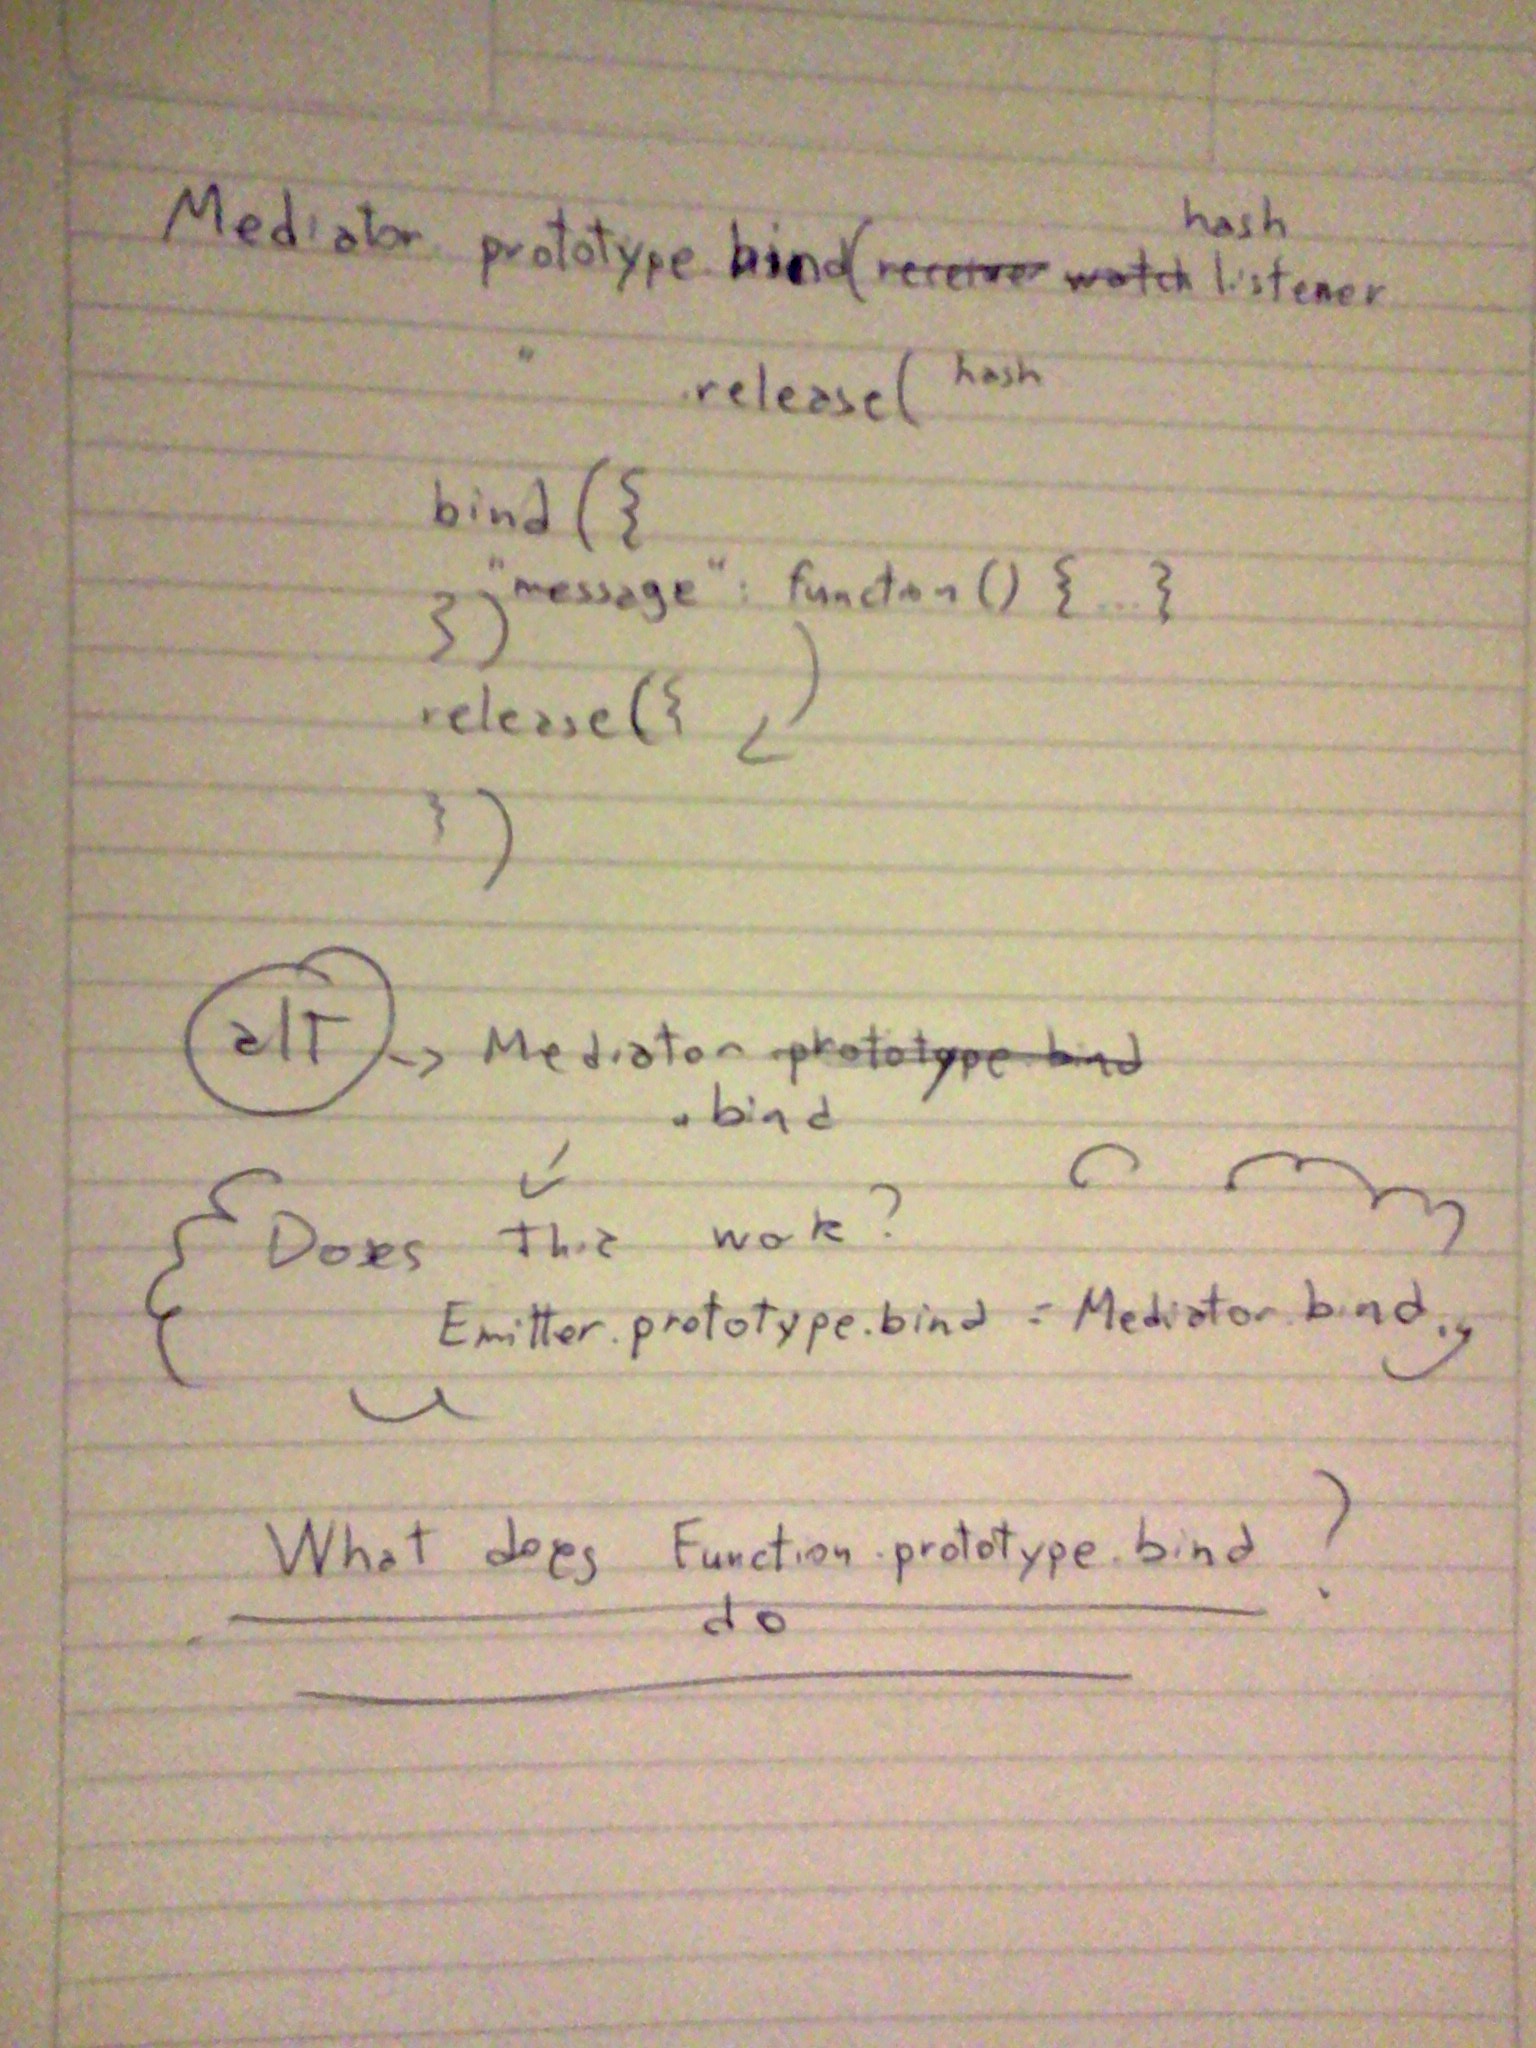 hash
Mediator prototype.bind(receiver watch listener
" .release( hash
bind ({
"message": function() { ... }
})
release({
})
alt -> Mediator prototype.bind
.bind
Does this work?
Emitter.prototype.bind = Mediator.bind.,
What does Function.prototype.bind ?
do